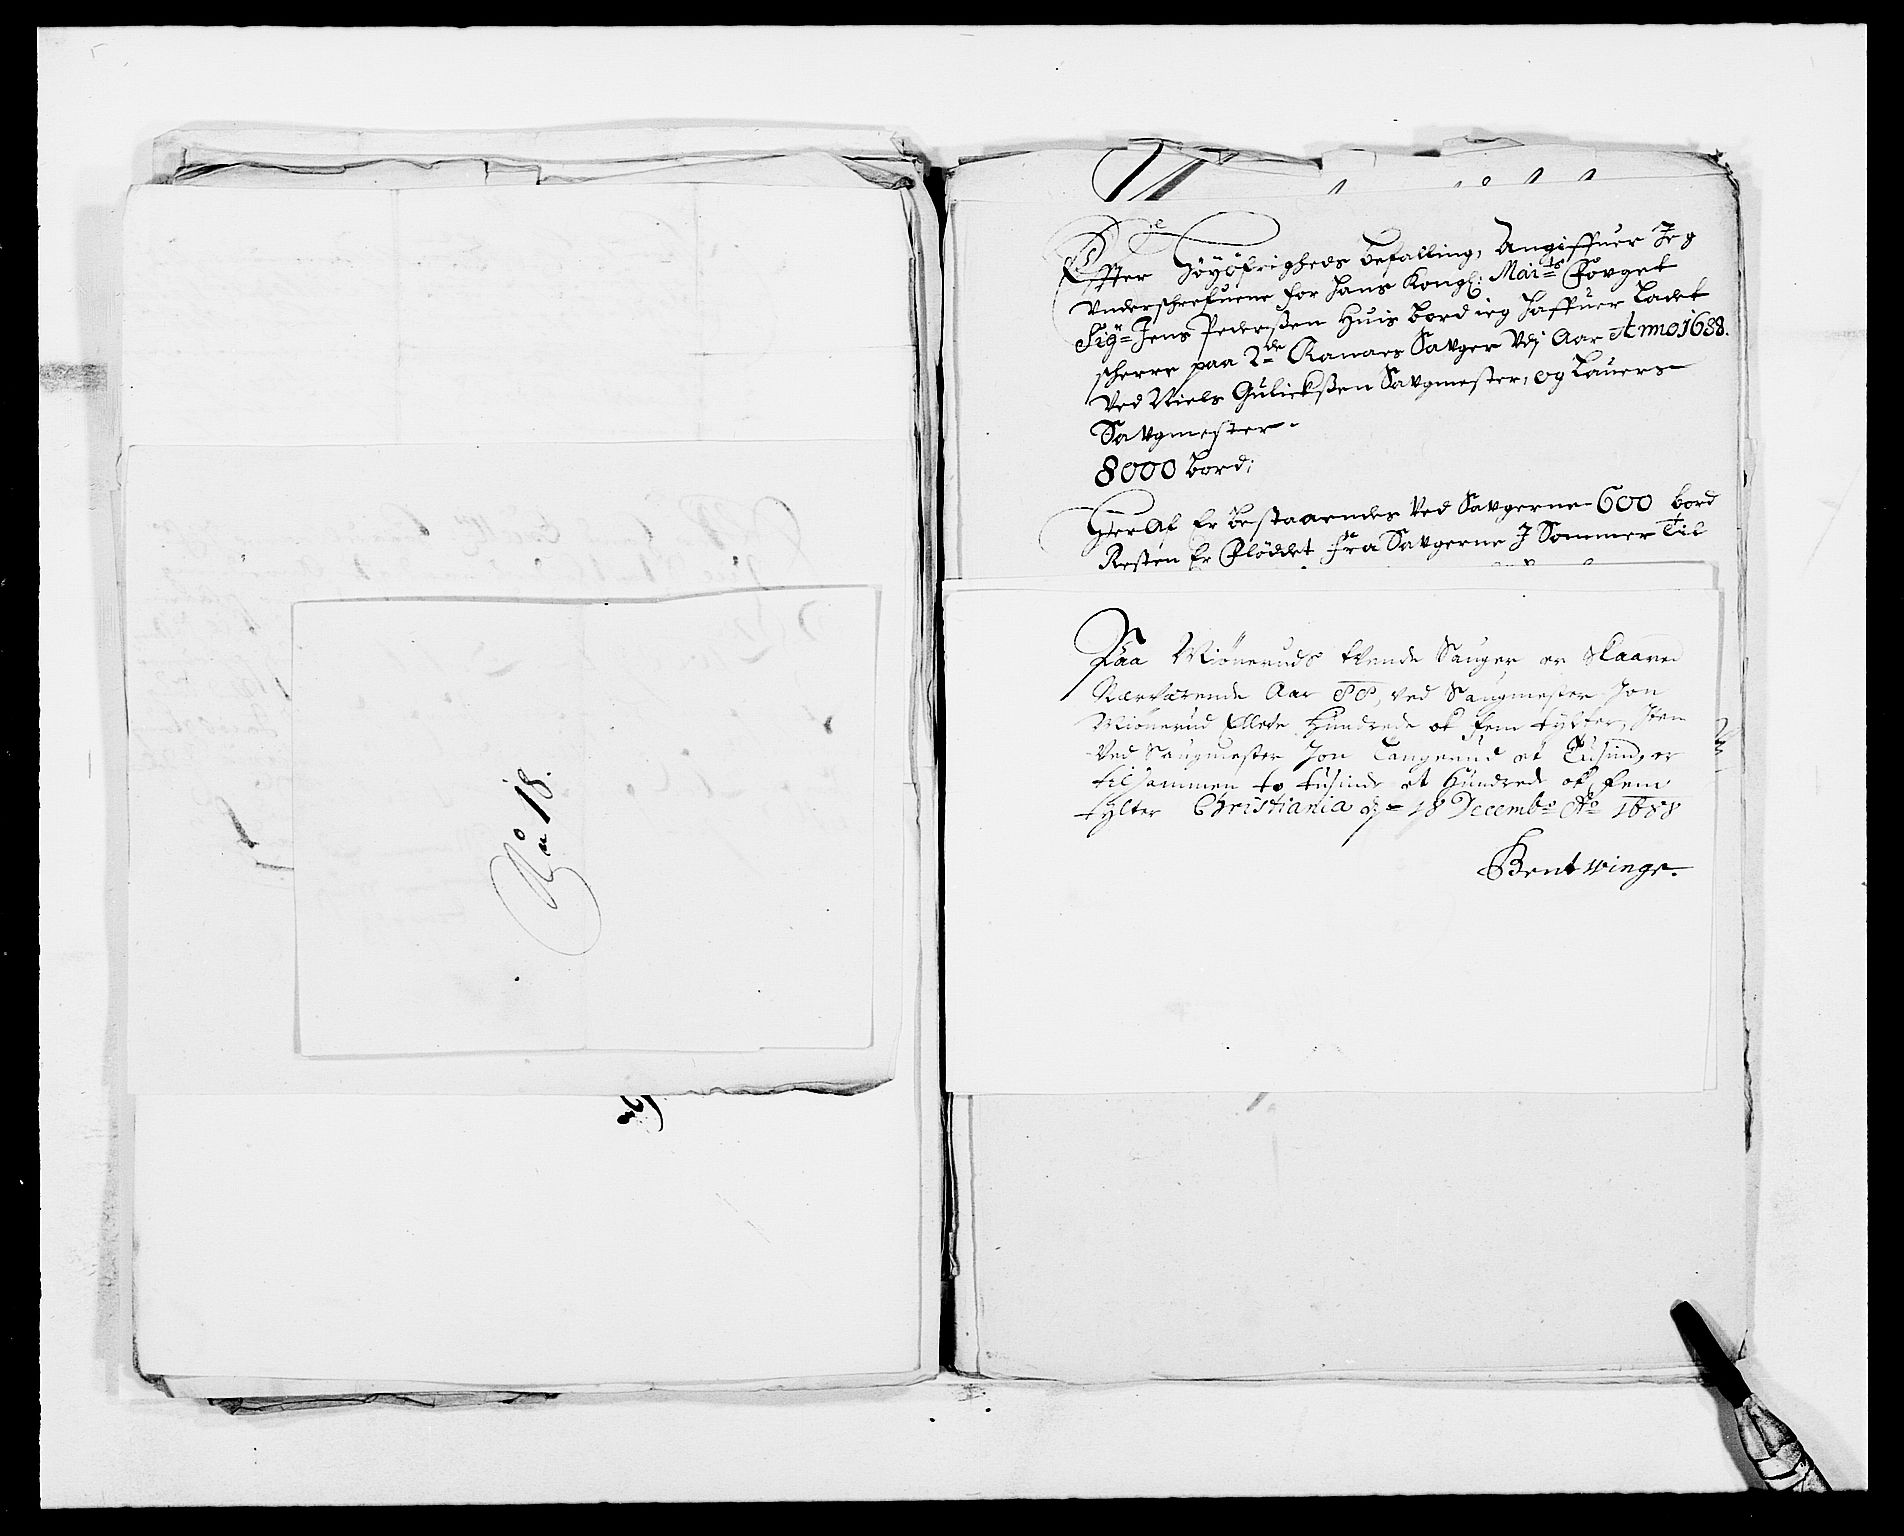 No 18.
Effter Høyöfrigheds befalling, Angiffuer Jeg
Underschrefuene for Hans Kongl: Maits Fovget
Sigr Jens Pederßen Huis bord ieg haffuer Ladet
scherre paa 2de Ranaes Savger Udj Aar Anno 1688.
Ved Niels Gulichßen Savgmester, og Lauers
Savgmester.
8000 bord;
Her Af Er bestaaendes Ved Savgerne 600 bord
Resten Er Fløddet fra Savgerne J Sommer Til
Paa Miönerud tvende Sauger er skaaren
Nærværende Aar 88, ved Saugmester Jon
Miönerud Ellefve Hundrede ok fem tylter, Item
Ved Saugmester Jon Tangerud et Tusind, er
tilsammen to tusinde et Hundrede ok fem
tylter Christiania d. 18 Decembr Ao 1688
Bent Winge.